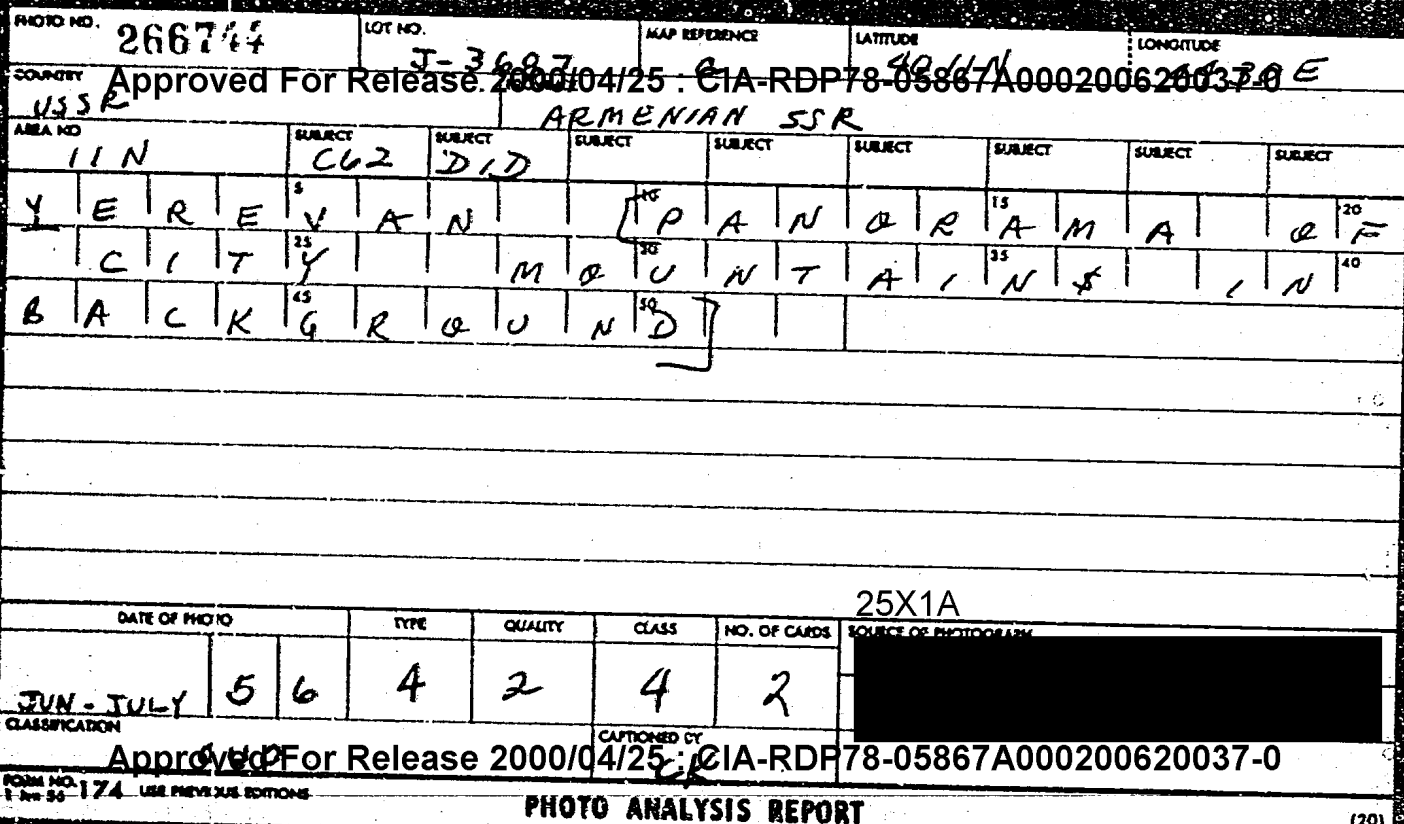 PHOTO NO. 266744 LOT NO. J-3687 MAP REFERENCE LATITUDE 40 11 N LONGITUDE 44 30 E
Approved For Release 2000/04/25 : CIA-RDP78-05867A000200620037-0
COUNTRY USSR ARMENIAN SSR
AREA NO 11N SUBJECT C62 SUBJECT D1D SUBJECT SUBJECT SUBJECT SUBJECT SUBJECT SUBJECT
YEREVAN [PANORAMA OF
CITY MOUNTAIN$ IN
BACKGROUND]
25X1A
DATE OF PHOTO TYPE QUALITY CLASS NO. OF CARDS SOURCE OF PHOTOGRAPH
JUN - JULY 56 4 2 4 2
CLASSIFICATION CAPTIONED BY
Approved For Release 2000/04/25 : CIA-RDP78-05867A000200620037-0
FORM NO. 174 USE PREVIOUS EDITIONS
1 Jun 56
PHOTO ANALYSIS REPORT
(20)